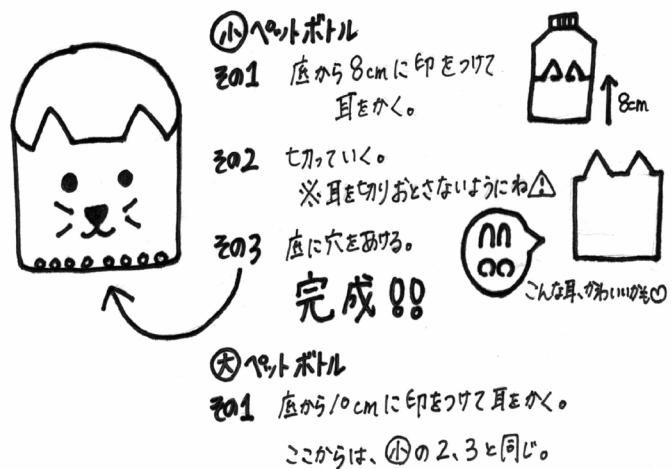 小ペットボトル
その1 底から8cmに印をつけて
耳をかく。
8cm
その2 切っていく。
※耳を切りおとさないようにね⚠
その3 底に穴をあける。
こんな耳、かわいいかも♡
完成!!
大ペットボトル
その1 底から10cmに印をつけて耳をかく。
ここからは、小の2、3と同じ。